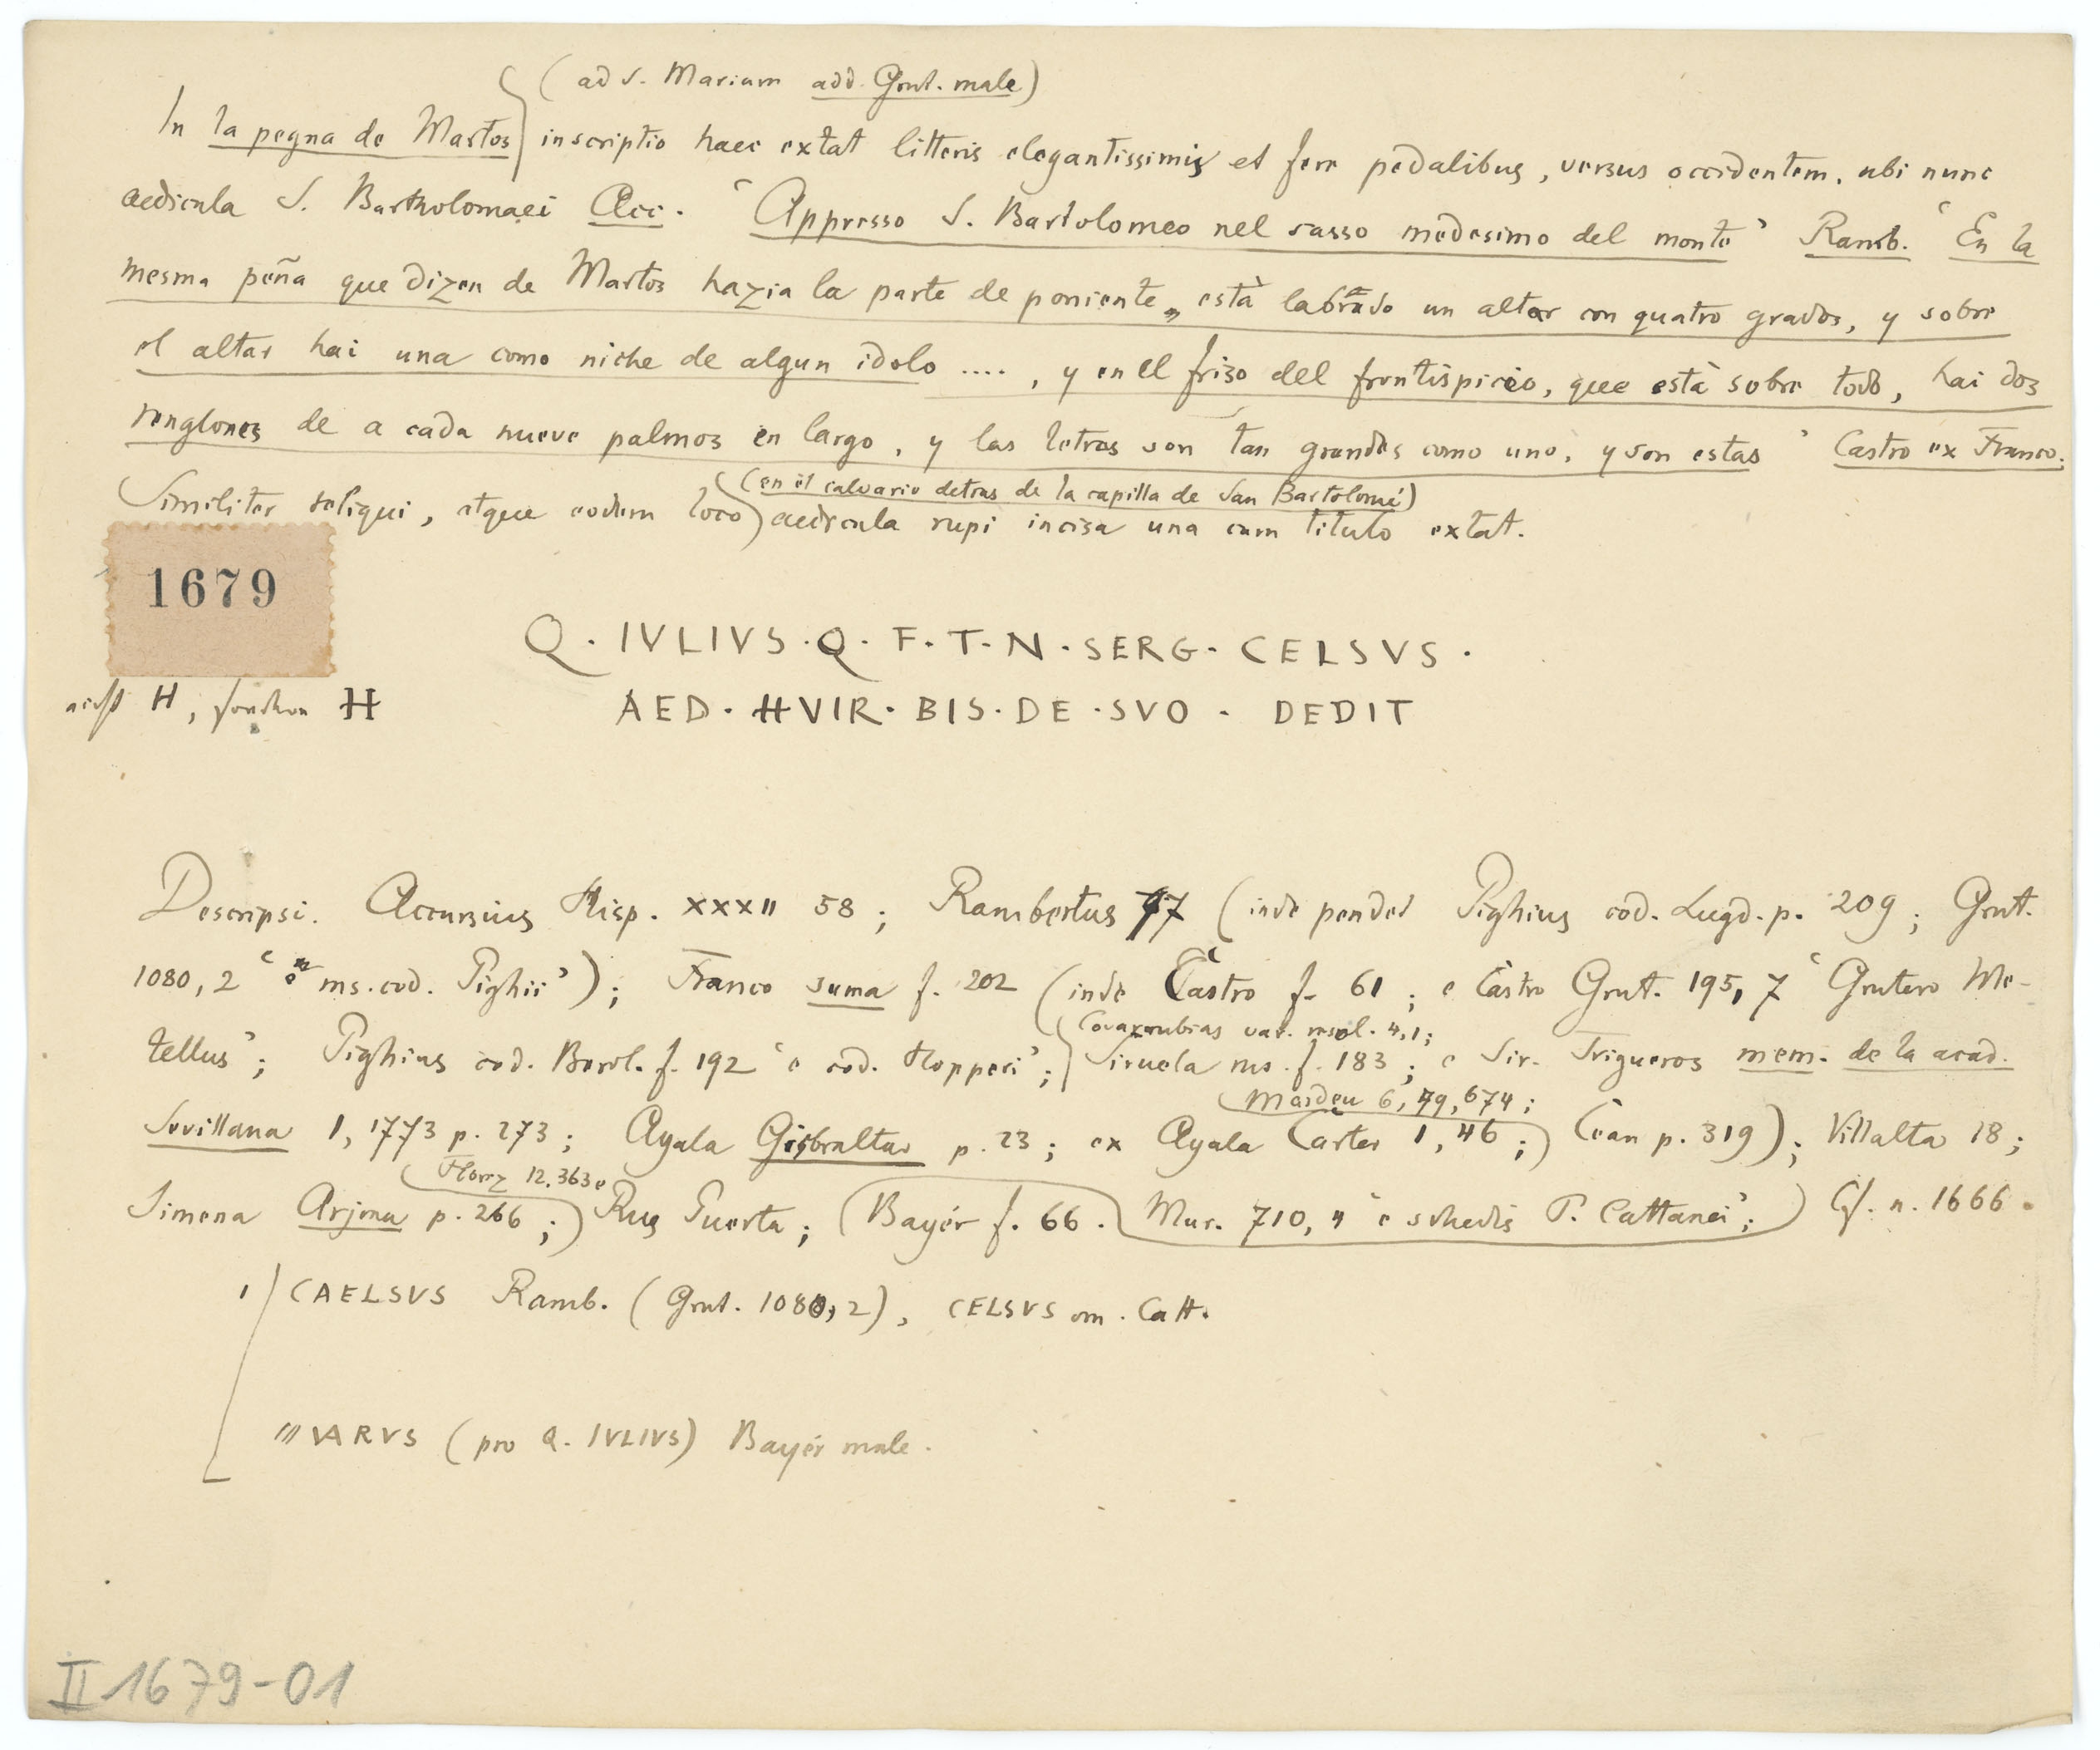 (ad S. Mariam add. Grut. male)
In la pegna de Martos inscriptio haec extat litteris elegantissimis et fere pedalibus, versus occidentem, ubi nunc
aedicula S. Bartholomaei Acc. ‘Appresso S. Bartolomeo nel sasso medesimo del monte’ Ramb. ‘En la
mesma peña que dizen de Martos hazia la parte de poniente, está labrado un altar con quatro grados, y sobre
el altar hai una como niche de algun idolo ...., y en el frizo del frontispicio, que está sobre todo, hai dos
renglones de a cada nueve palmos en largo, y las letras son tan grandes como uno, y son estas’ Castro ex Franco.
(en el calvario detras de la capilla de San Bartolomé)
Similiter reliqui, atque eodem loco aedicula rupi incisa una cum titulo extat.
1679
Q. IVLIVS. Q. F. T. N. SERG. CELSVS.
nicht H, sondern H
AED. HVIR. BIS. DE. SVO. DEDIT
Descripsi. Accursius Hisp. XXXII 58; Rambertus 97 (inde pendet Pighius cod. Lugd. p. 209; Grut.
1080, 2 ‘ ms. cod. Pighii’); Franco suma f. 202 (inde Castro f. 61; e Castro Grut. 195, 7 ‘Grutero Me-
Covarrubias var. resol. 4,1;
tellus’; Pighius cod. Berol. f. 192 ‘e cod. Hopperi’; Siruela ms. f. 183; e Sir. Trigueros mem. de la acad.
Masdeu 6, 79, 674;
Sevillana 1, 1773 p. 273; Ayala Gisbraltar p. 23; ex Ayala Carter 1, 46; Cean p. 319); Villalta 18;
Florez 12, 363
Simena Arjona p. 266; Rus Puerta; Bayér f. 66. Mur. 710, 4 ‘e schedis P. Cattanei’; Cf. n. 1666.
1 CAELSVS Ramb. (Grut. 1080, 2), CELSVS om. Catt.
VARVS (pro Q. IVLIVS) Bayér male.
II 1679-01